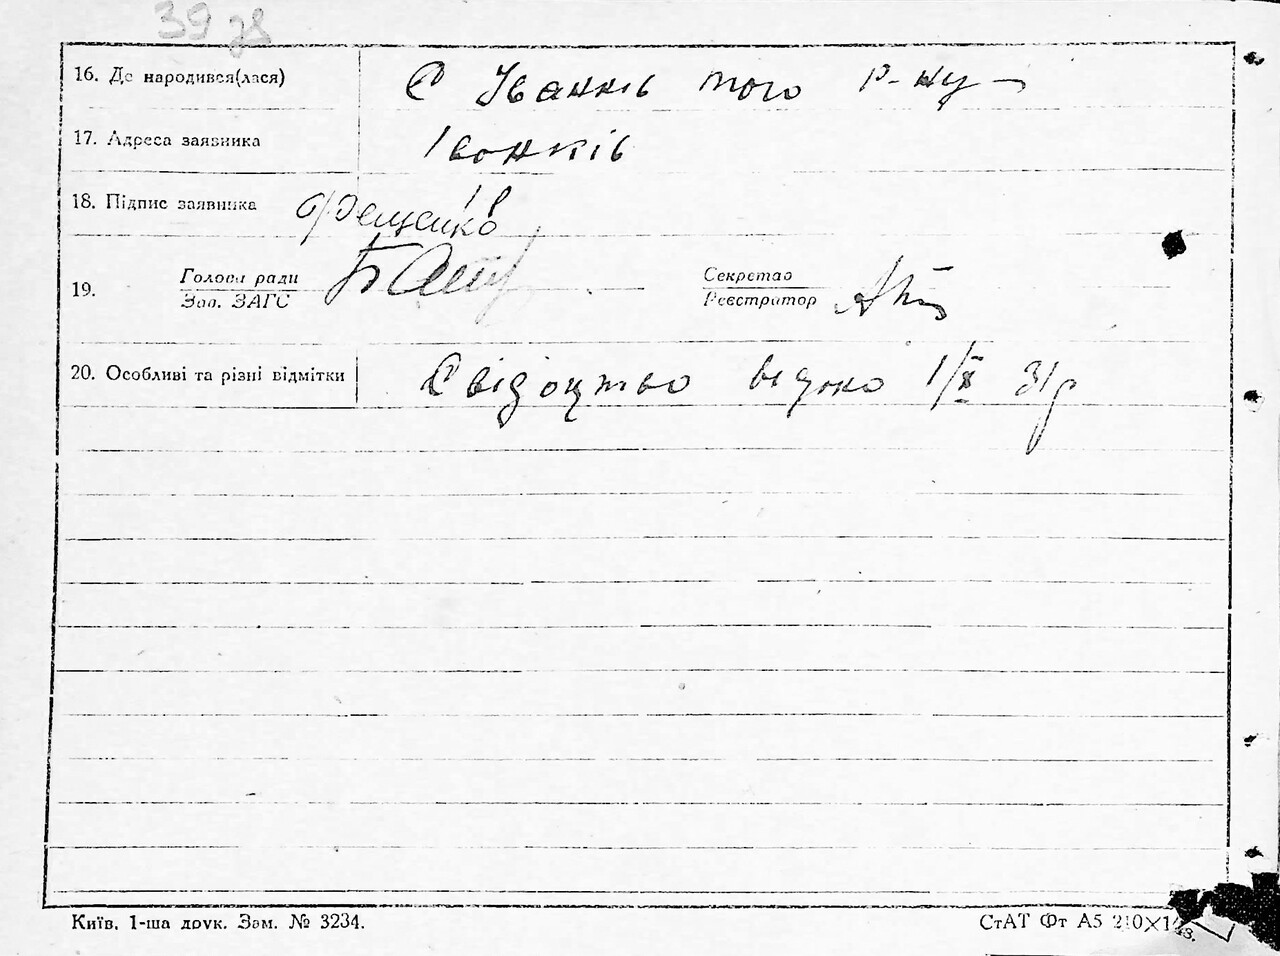 39 зв
16. Де народився(лася) С Іванків того р-ну
17. Адреса заявника Іванків
18. Підпис заявника Фещенко
19. Голова ради Секретар
Зав. ЗАГС Реєстратор
20. Особливі та різні відмітки Свідоцтво видано 1/X 31р
Київ. 1-ша друк. Зам. № 3234. СтАТ Фт А5 210×148.